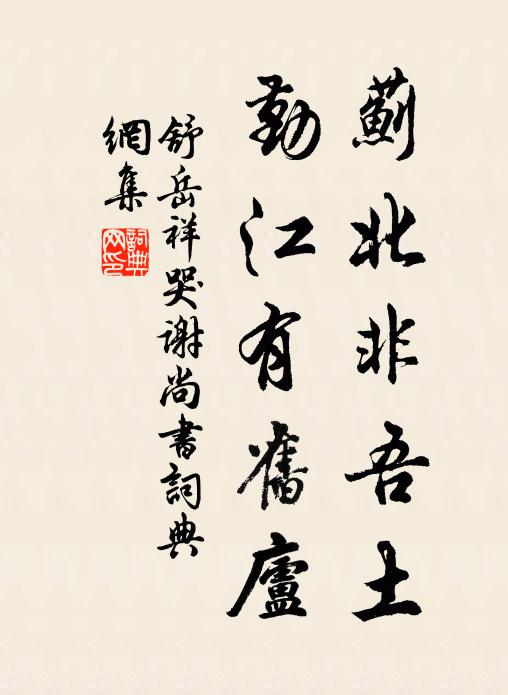 薊北非吾土
勤江有舊廬
舒岳祥哭謝尚書詞典
網集
詞典網印